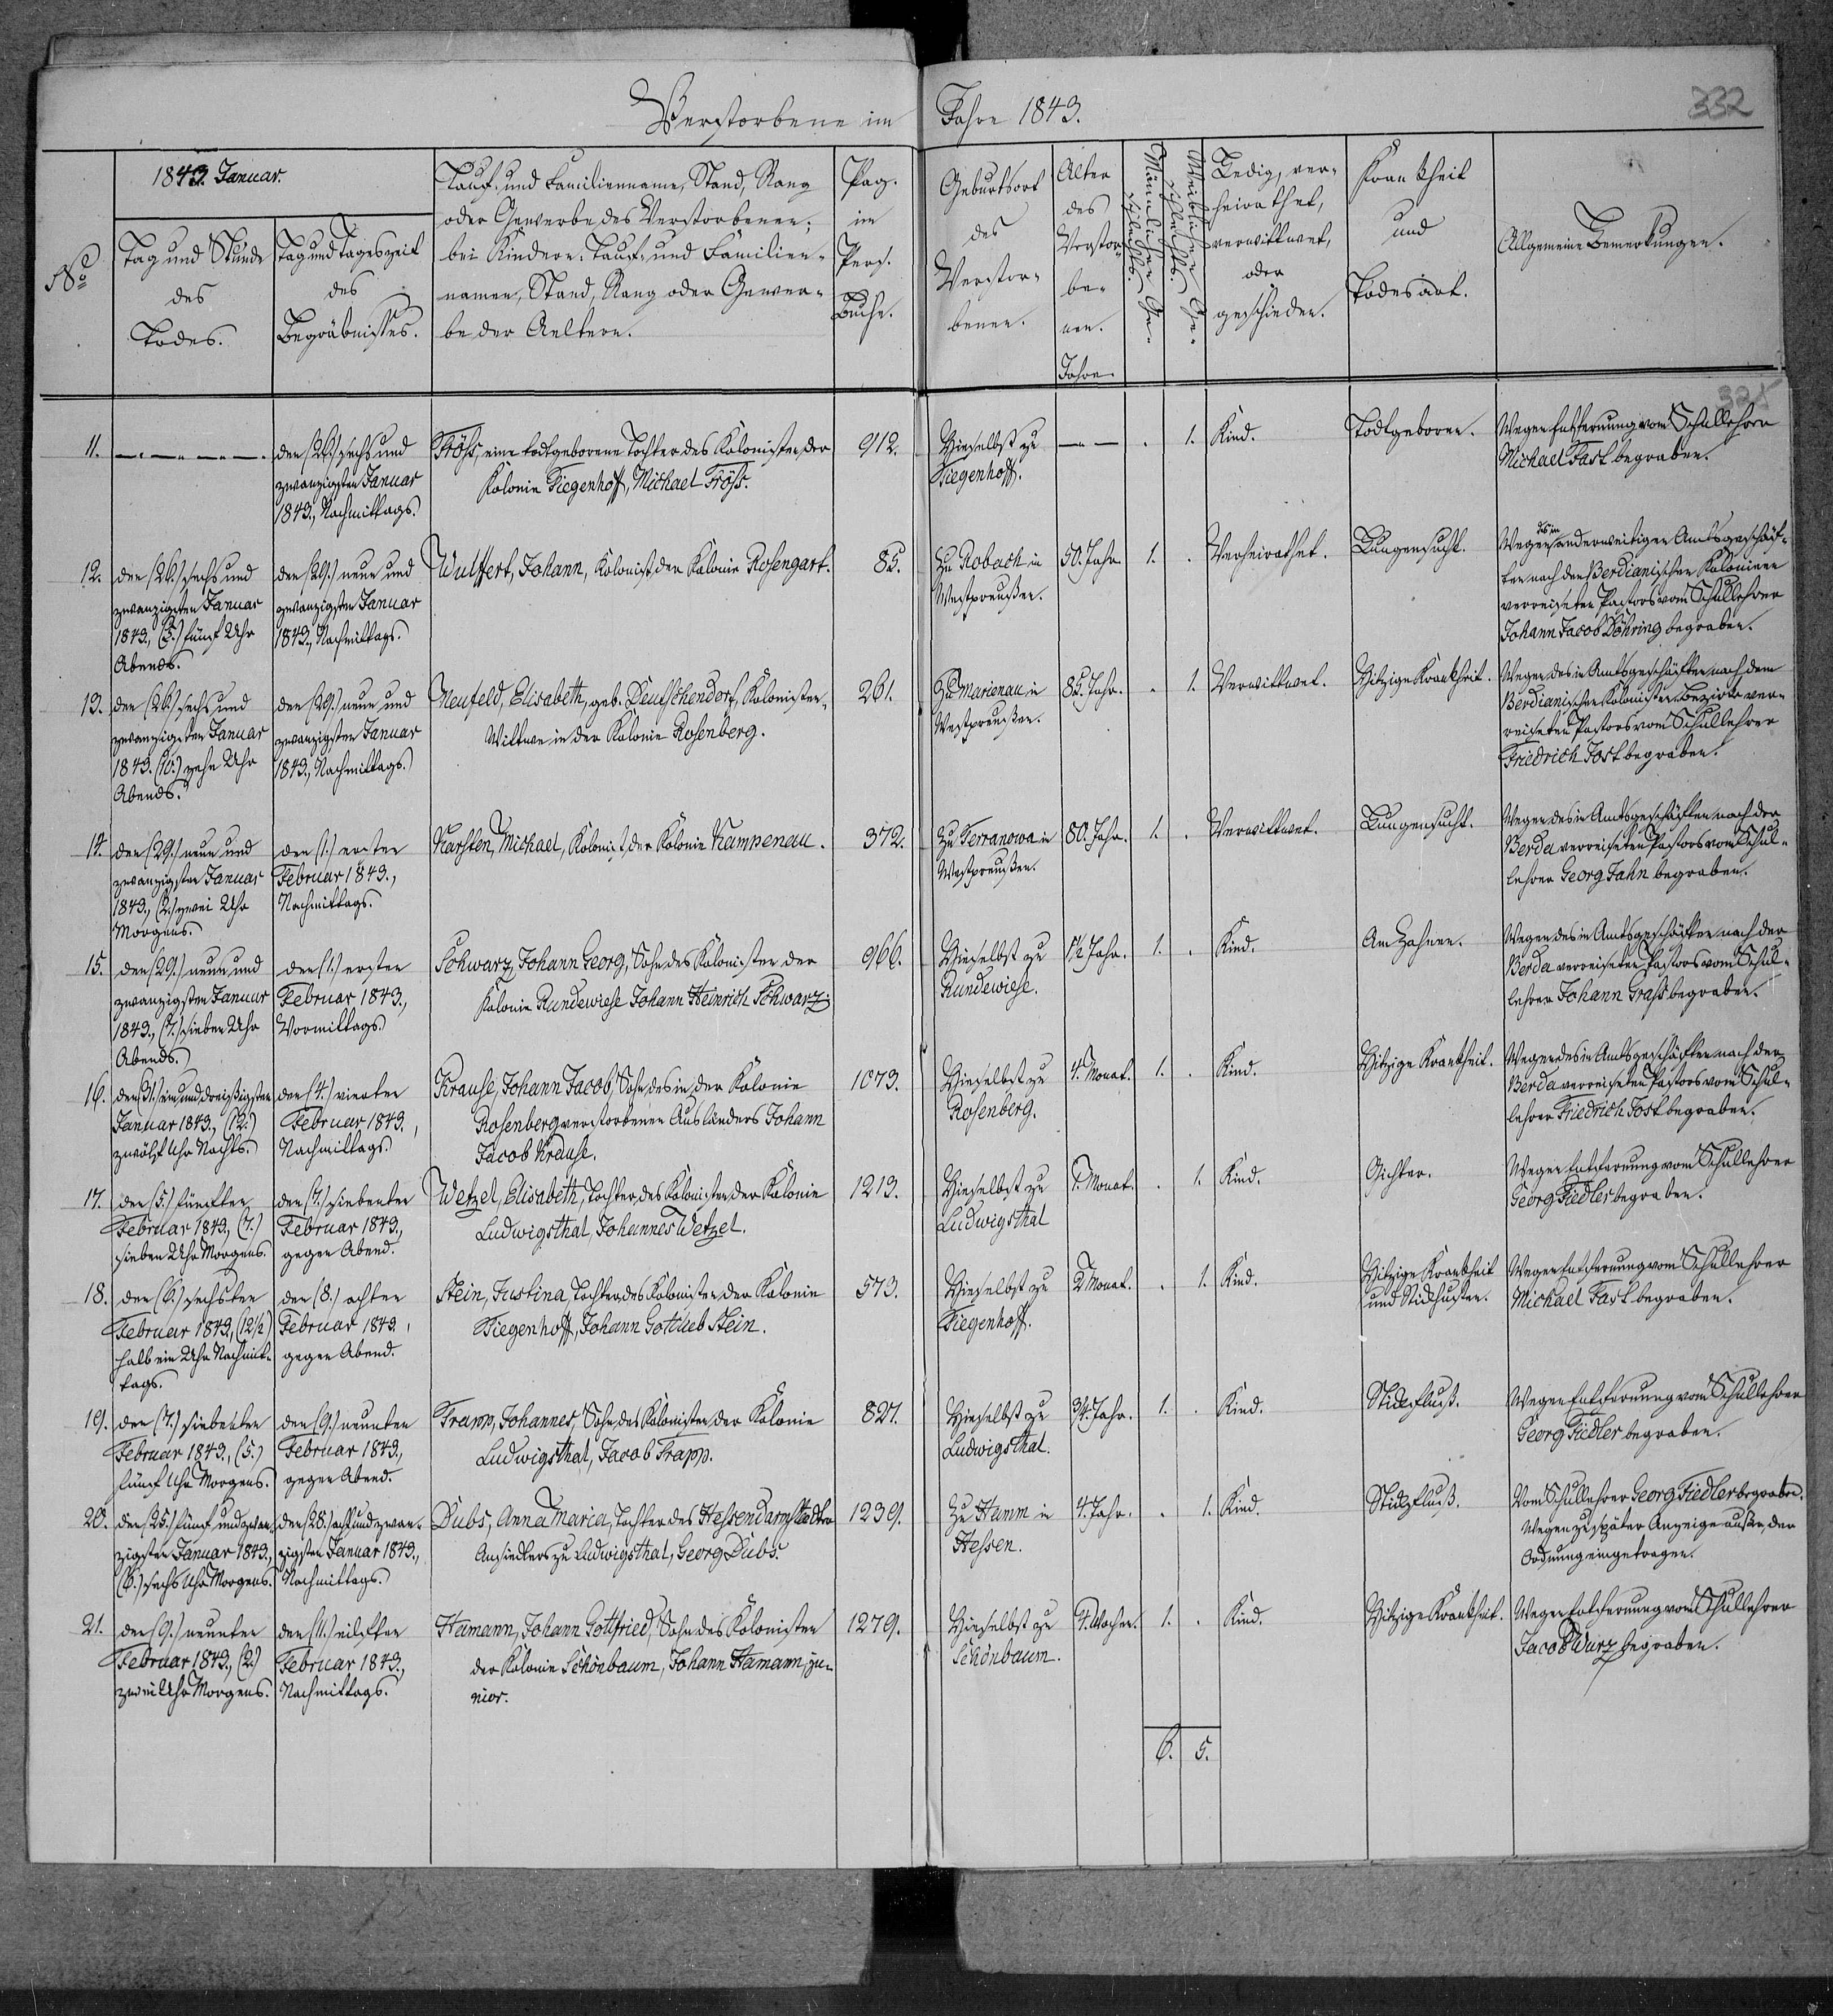 Verstorbene im Jahre 1843.
332
No
1843. Januar.
Tag und Stunde
des
Todes.
Tag und Tageszeit
des
Begräbnisses.
Tauf- und Familienname, Stand, Rang
oder Gewerbe des Verstorbenen;
bei Kindern: Tauf- und Familien-
namen, Stand, Rang oder Gewer-
be der Aeltern.
Pag.
im
Pers.
Buche.
Geburtsort
des
Verstor-
benen.
Alter
des
Verstor-
be-
nen.
Jahre.
Männlichen Ge-
schlechts.
Weiblichen Ge-
schlechts.
Ledig, ver-
heirathet,
verwittwet,
oder
geschieden.
Krankheit
und
Todesart.
Allgemeine Bemerkungen.
11.
den (26.) sechs und
zwanzigsten Januar
1843., Nachmittags.
Fröss, eine todtgeborene Tochter des Kolonisten der
Kolonie Tiegenhoff, Michael Fröss.
912.
Hieselbst zu
Tiegenhoff.
1.
Kind.
Todtgeboren.
Wegen Entfernung vom Schullehrer
Michael Fast begraben.
12.
den (26.) sechs und
zwanzigsten Januar
1843., (5.) fünf Uhr
Abends.
den (29.) neun und
zwanzigsten Januar
1843., Nachmittags.
Wulffert, Johann, Kolonist der Kolonie Rosengart.
85.
Zu Robach in
Westpreußen.
50. Jahr.
1.
Verheirathet.
Lungensucht.
Wegen des in anderweitigen Amtsgeschäf-
ten nach den Berdianischen Kolonien
verreiseten Pastors vom Schullehrer
Johann Jacob Döhring begraben.
13.
den (26.) sechs und
zwanzigsten Januar
1843. (10.) zehn Uhr
Abends.
den (29.) neun und
zwanzigsten Januar
1843., Nachmittags.
Neufeld, Elisabeth, geb. Deutschendorf, Kolonisten-
Wittwe in der Kolonie Rosenberg.
261.
Zu Marienau in
Westpreußen.
85. Jahr.
1.
Verwittwet.
Hitzige Krankheit.
Wegen des in Amtsgeschäften nach dem
Berdianischen Kolonisten-Bezirk ver-
reiseten Pastors vom Schullehrer
Friedrich Jost begraben.
14.
den (29.) neun und
zwanzigsten Januar
1843., (2.) zwei Uhr
Morgens.
den (1.) ersten
Februar 1843.,
Nachmittags.
Karsten, Michael, Kolonist, der Kolonie Kampenau.
372.
Zu Terranowa in
Westpreußen.
80. Jahr.
1.
Verwittwet.
Lungensucht.
Wegen des in Amtsgeschäften nach der
Berda verreiseten Pastors vom Schul-
lehrer Georg Jahn begraben.
15.
den (29.) neun und
zwanzigsten Januar
1843., (7.) sieben Uhr
Abends.
den (1.) ersten
Februar 1843.,
Vormittags.
Schwarz, Johann Georg, Sohn des Kolonisten der
Kolonie Rundewiese Johann Heinrich Schwarz.
966.
Hieselbst zu
Rundewiese.
1½ Jahr.
1.
Kind.
Am Zahnen.
Wegen des in Amtsgeschäften nach der
Berda verreiseten Pastors vom Schul-
lehrer Johann Grass begraben.
16.
den (31.) ein und dreißigsten
Januar 1843., (12.)
zwölf Uhr Nachts.
den (4.) vierten
Februar 1843.,
Nachmittags.
Krause, Johann Jacob, Sohn des in der Kolonie
Rosenberg verstorbenen Ausländers Johann
Jacob Krause.
1073.
Hieselbst zu
Rosenberg.
4. Monat.
1.
Kind.
Hitzige Krankheit.
Wegen des in Amtsgeschäften nach der
Berda verreiseten Pastors vom Schul-
lehrer Friedrich Jost begraben.
17.
den (5.) fünften
Februar 1843., (7.)
sieben Uhr Morgens.
den (7.) siebenten
Februar 1843.,
gegen Abend.
Wetzel, Elisabeth, Tochter des Kolonisten der Kolonie
Ludwigsthal, Johannes Wetzel.
1213.
Hieselbst zu
Ludwigsthal
Monat.
1.
Kind.
Gichter.
Wegen Entfernung vom Schullehrer
Georg Fiedler begraben.
18.
den (6.) sechsten
Februar 1843., (12½)
halb ein Uhr Nachmit-
tags.
den (8.) achten
Februar 1843.,
gegen Abend.
Stein, Justina, Tochter des Kolonisten der Kolonie
Tiegenhoff, Johann Gottlieb Stein.
573.
Hieselbst zu
Tiegenhoff.
2 Monat.
1.
Kind.
Hitzige Krankheit
und Stickhusten.
Wegen Entfernung vom Schullehrer
Michael Fast begraben.
19.
den (7.) siebenten
Februar 1843., (5.)
fünf Uhr Morgens.
den (9.) neunten
Februar 1843.,
gegen Abend.
Trapp, Johannes, Sohn des Kolonisten der Kolonie
Ludwigsthal, Jacob Trapp.
827.
Hieselbst zu
Ludwigsthal.
¾ Jahr.
1.
Kind.
Stickfluß.
Wegen Entfernung vom Schullehrer
Georg Fiedler begraben.
20.
den (25.) fünf und zwan-
zigsten Januar 1843.,
(6.) sechs Uhr Morgens.
den (28.) acht und zwan-
zigsten Januar 1843.,
Nachmittags.
Dubs, Anna Maria, Tochter des Hessendarmstädter
Ansiedlers zu Ludwigsthal, Georg Dubs.
1239.
Zu Hamm in
Hessen.
4. Jahr.
1.
Kind.
Stickfluß.
Vom Schullehrer Georg Fiedler begraben.
Wegen zu später Anzeige außer der
Ordnung eingetragen.
21.
den (9.) neunten
Februar 1843., (2.)
zwei Uhr Morgens.
den (11.) eilften
Februar 1843.,
Nachmittags.
Hamann, Johann Gottfried, Sohn des Kolonisten
der Kolonie Schönbaum, Johann Hamann, ju-
nior.
1279.
Hieselbst zu
Schönbaum.
Wochen.
1.
Kind.
Hitzige Krankheit.
Wegen Entfernung vom Schullehrer
Jacob Wurz begraben.
6. 5.